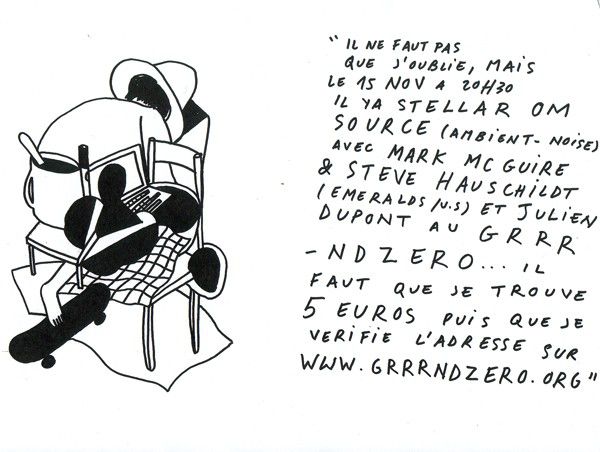 " IL NE FAUT PAS
QUE J'OUBLIE, MAIS
LE 15 NOV A 20H30
IL YA STELLAR OM
SOURCE (AMBIENT-NOISE)
AVEC MARK MC GUIRE
& STEVE HAUSCHILDT
(EMERALDS/U.S) ET JULIEN
DUPONT AU GRRR
-NDZERO... IL
FAUT QUE JE TROUVE
5 EUROS PUIS QUE JE
VERIFIE L'ADRESSE SUR
WWW.GRRRNDZERO.ORG"